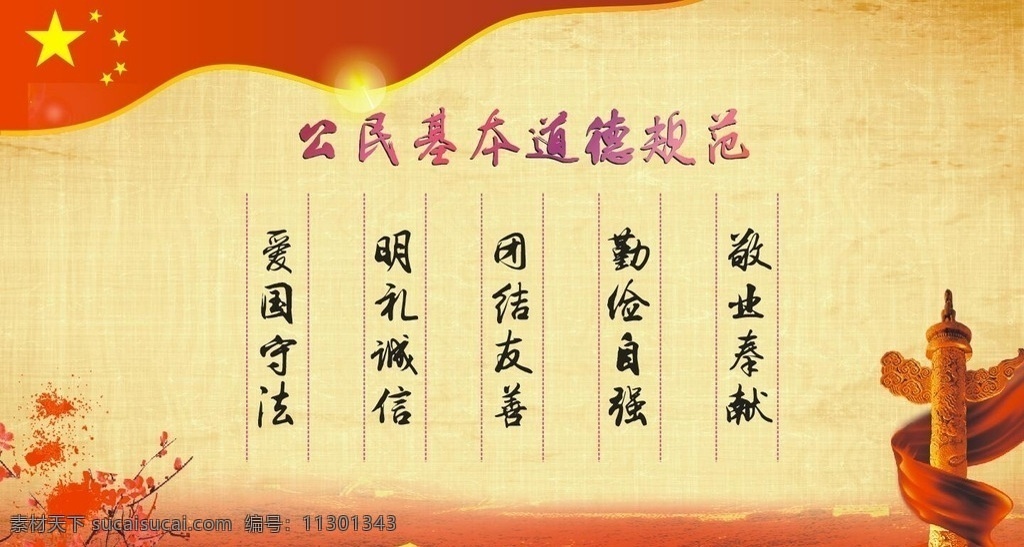 公民基本道德规范
爱国守法
明礼诚信
团结友善
勤俭自强
敬业奉献
素材天下 sucaisucai.com 编号：11301343